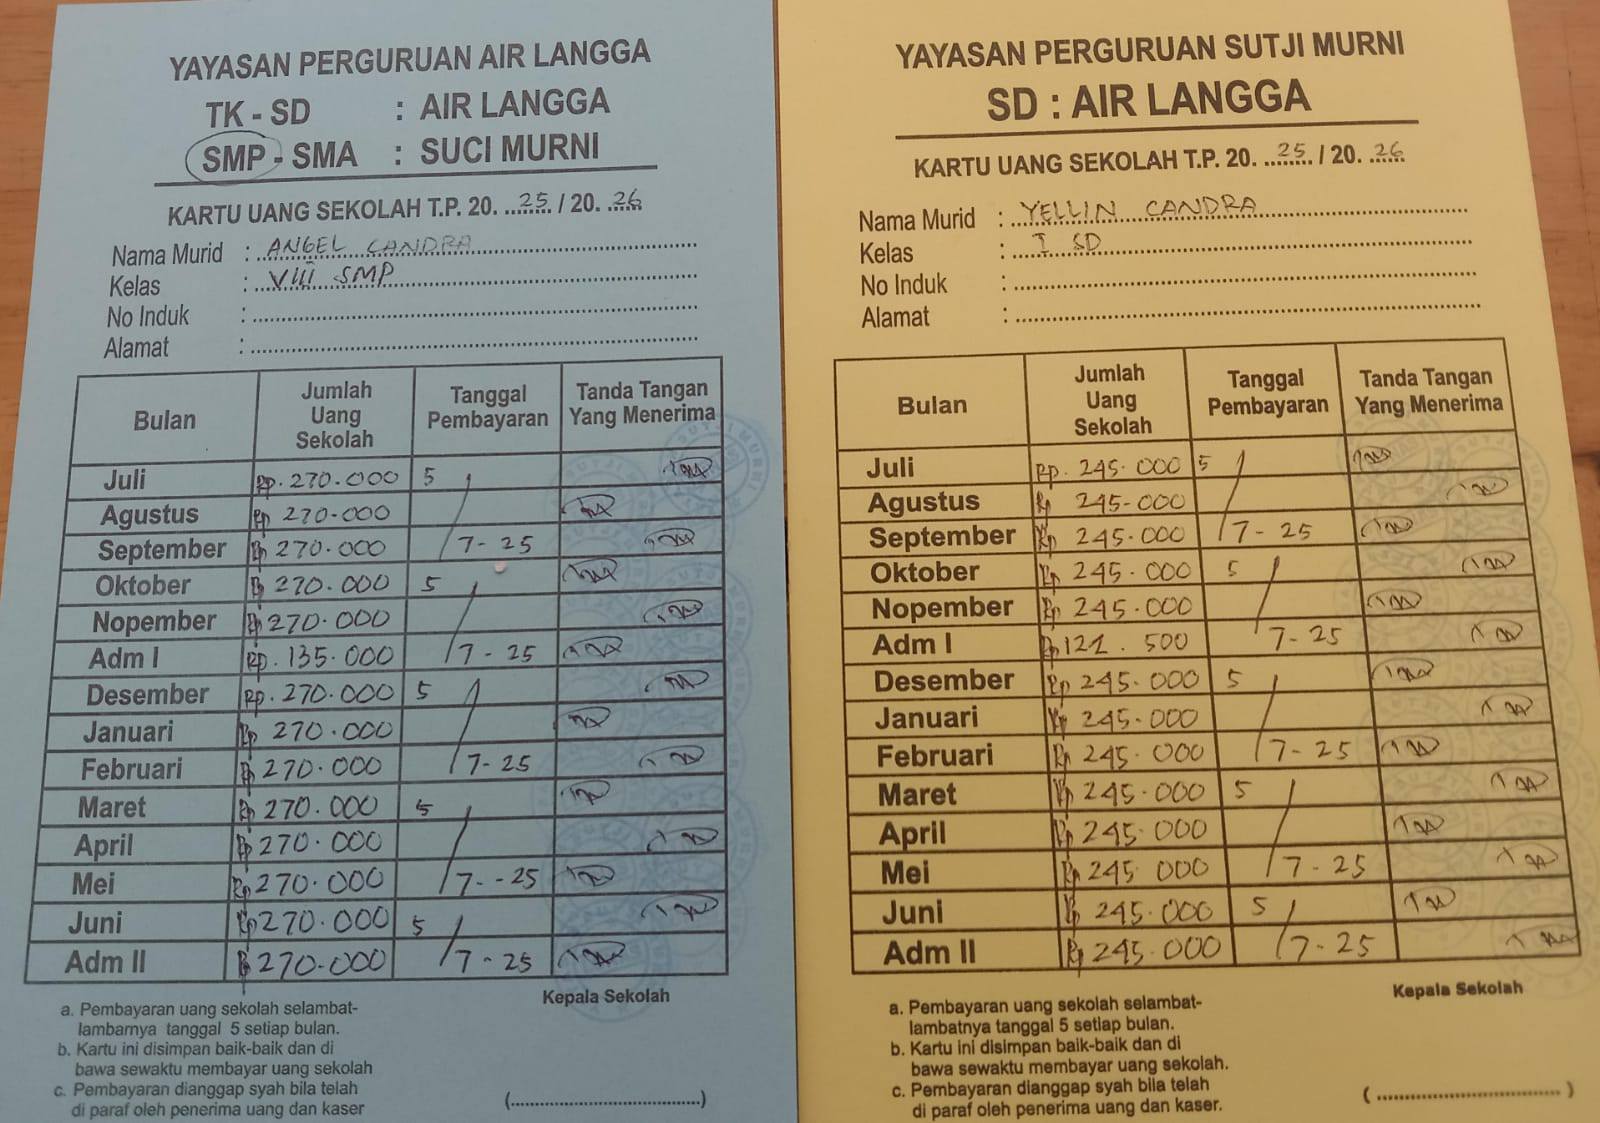 YAYASAN PERGURUAN AIR LANGGA
TK - SD : AIR LANGGA
SMP - SMA : SUCI MURNI
KARTU UANG SEKOLAH T.P. 20. 25 / 20. 26
Nama Murid : ANGEL CANDRA
Kelas : VIII SMP
No Induk :
Alamat :
Bulan Jumlah Uang Sekolah Tanggal Pembayaran Tanda Tangan Yang Menerima
Juli Rp. 270.000 5
Agustus Rp 270.000 /
September Rp 270.000 7-25
Oktober Rp 270.000 5
Nopember Rp 270.000 /
Adm I Rp. 135.000 7-25
Desember Rp. 270.000 5
Januari Rp 270.000 /
Februari Rp 270.000 7-25
Maret Rp 270.000 5
April Rp 270.000 /
Mei Rp 270.000 7--25
Juni Rp 270.000 5 /
Adm II Rp 270.000 7-25
a. Pembayaran uang sekolah selambat-
lambarnya tanggal 5 setiap bulan.
b. Kartu ini disimpan baik-baik dan di
bawa sewaktu membayar uang sekolah
c. Pembayaran dianggap syah bila telah
di paraf oleh penerima uang dan kaser
Kepala Sekolah
(....................................)
YAYASAN PERGURUAN SUTJI MURNI
SD : AIR LANGGA
KARTU UANG SEKOLAH T.P. 20. 25 / 20. 26
Nama Murid : YELLIN CANDRA
Kelas : I SD
No Induk :
Alamat :
Bulan Jumlah Uang Sekolah Tanggal Pembayaran Tanda Tangan Yang Menerima
Juli Rp. 245.000 5
Agustus Rp 245-000 /
September Rp 245.000 7-25
Oktober Rp 245.000 5
Nopember Rp 245.000 /
Adm I Rp 121.500 7-25
Desember Rp 245.000 5
Januari Rp 245.000 /
Februari Rp 245.000 7-25
Maret Rp 245.000 5
April Rp 245.000 /
Mei Rp 245.000 7-25
Juni Rp 245.000 5 /
Adm II Rp 245.000 7-25
a. Pembayaran uang sekolah selambat-
lambatnya tanggal 5 setiap bulan.
b. Kartu ini disimpan baik-baik dan di
bawa sewaktu membayar uang sekolah.
c. Pembayaran dianggap syah bila telah
di paraf oleh penerima uang dan kaser.
Kepala Sekolah
(....................................)